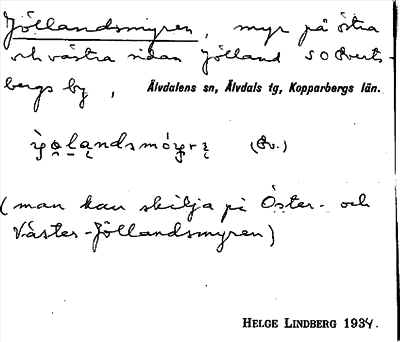 Jöllandsmyren, myr på östra
och västra sidan Jölland S O Bverts-
bergs by, Älvdalens sn, Älvdals tg, Kopparbergs län.
(Öv.)
(man kan skilja på Öster- och
Väster-Jöllandsmyren)
HELGE LINDBERG 1934.